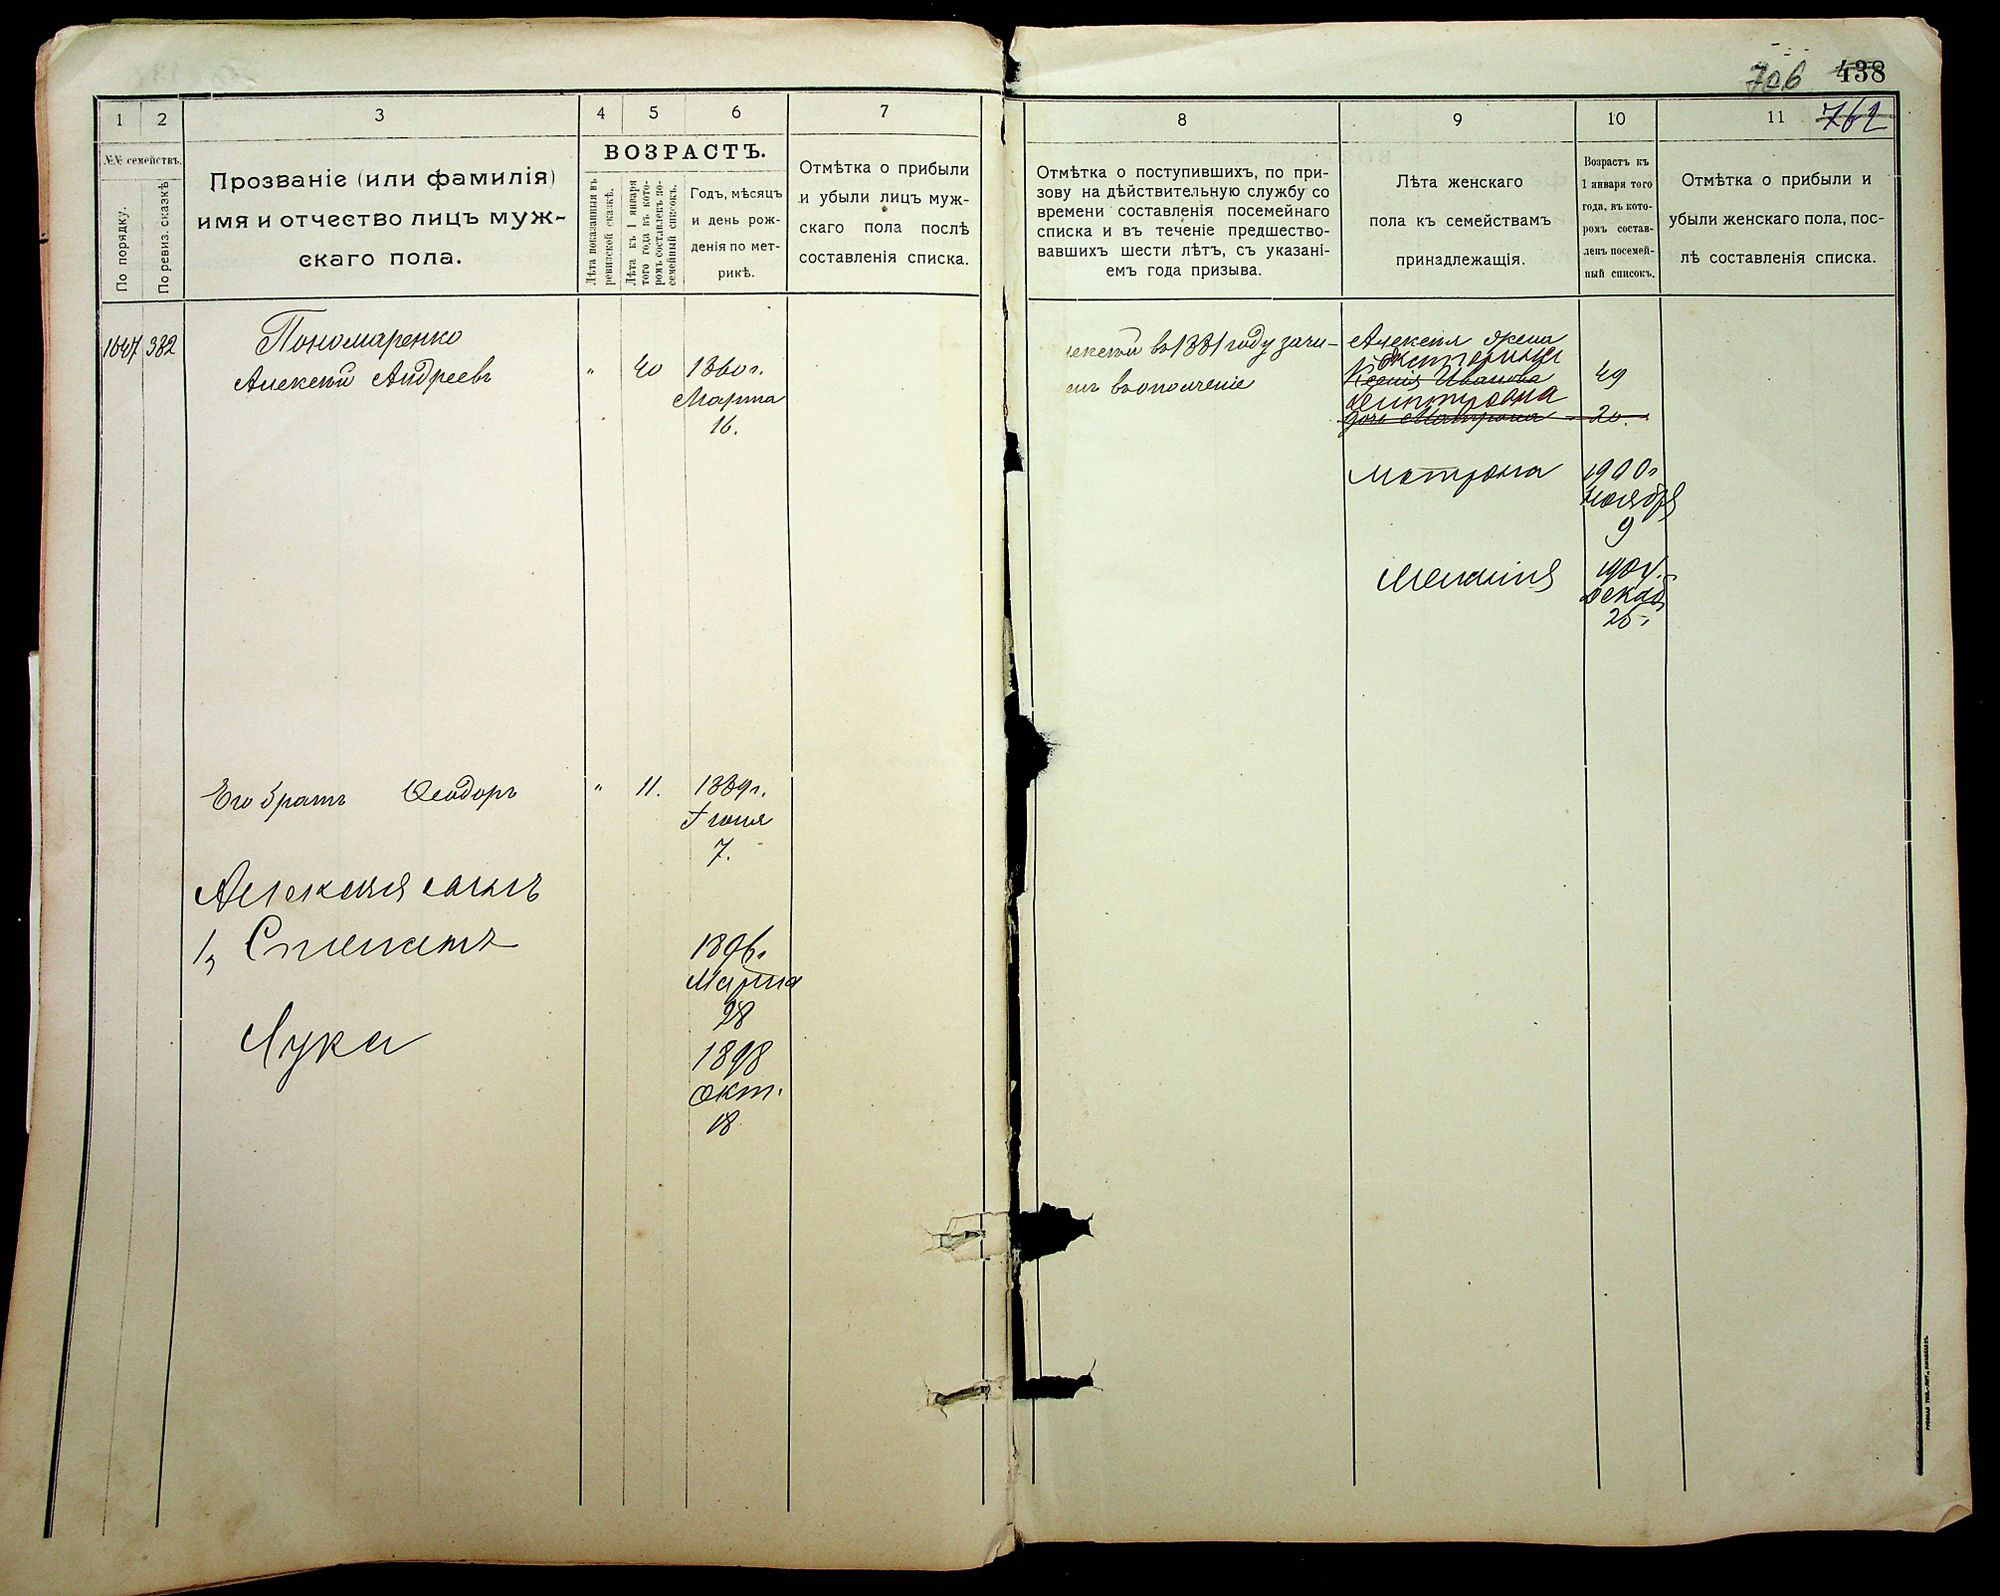 706 438
1 2 3 4 5 6 7
8 9 10 11 762
№№ семействъ.
По порядку.
По ревиз. сказкѣ
Прозваніе (или фамилія)
имя и отчество лицъ муж-
скаго пола.
ВОЗРАСТЪ.
Лѣта показанныя въ
ревизской сказкѣ.
Лѣта къ 1 января
того года въ кото-
ромъ составленъ по-
семейный списокъ.
Годъ, мѣсяцъ
и день рож-
денія по мет-
рикѣ.
Отмѣтка о прибыли
и убыли лицъ муж-
скаго пола послѣ
составленія списка.
Отмѣтка о поступившихъ, по при-
зову на дѣйствительную службу со
времени составленія посемейнаго
списка и въ теченіе предшество-
вавшихъ шести лѣтъ, съ указані-
емъ года призыва.
Лѣта женскаго
пола къ семействамъ
принадлежащія.
Возрастъ къ
1 января того
года, въ кото-
ромъ состав-
ленъ посемей-
ный списокъ.
Отмѣтка о прибыли и
убыли женскаго пола, пос-
лѣ составленія списка.
1647 382 Пономаренко
Алексѣй Андреевъ " 40 1860 г.
Марта
16.
лексѣй въ 1881 году зачи-
енъ въ ополченіе
Алексѣя жена
Екатерина
Ксенія Иванова 49
Дмитровна
дочь Матрона 20.
Матрона 1900 г
Ноября
9
Меланія 1904.
Декаб
25.
Его братъ Ѳеодоръ " 11. 1889 г.
Іюня
7.
Алексѣя сынъ
1, Степанъ 1896.
Марта
28
Лука 1898
Окт.
18